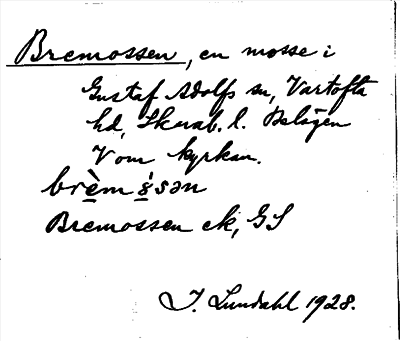 Bremossen, en mosse i
Gustaf Adolfs sn, Vartofta
hd, Skarab. l. Belägen
V om kyrkan.
brèmósən
Bremossen ek, GS
I. Lundahl 1928.